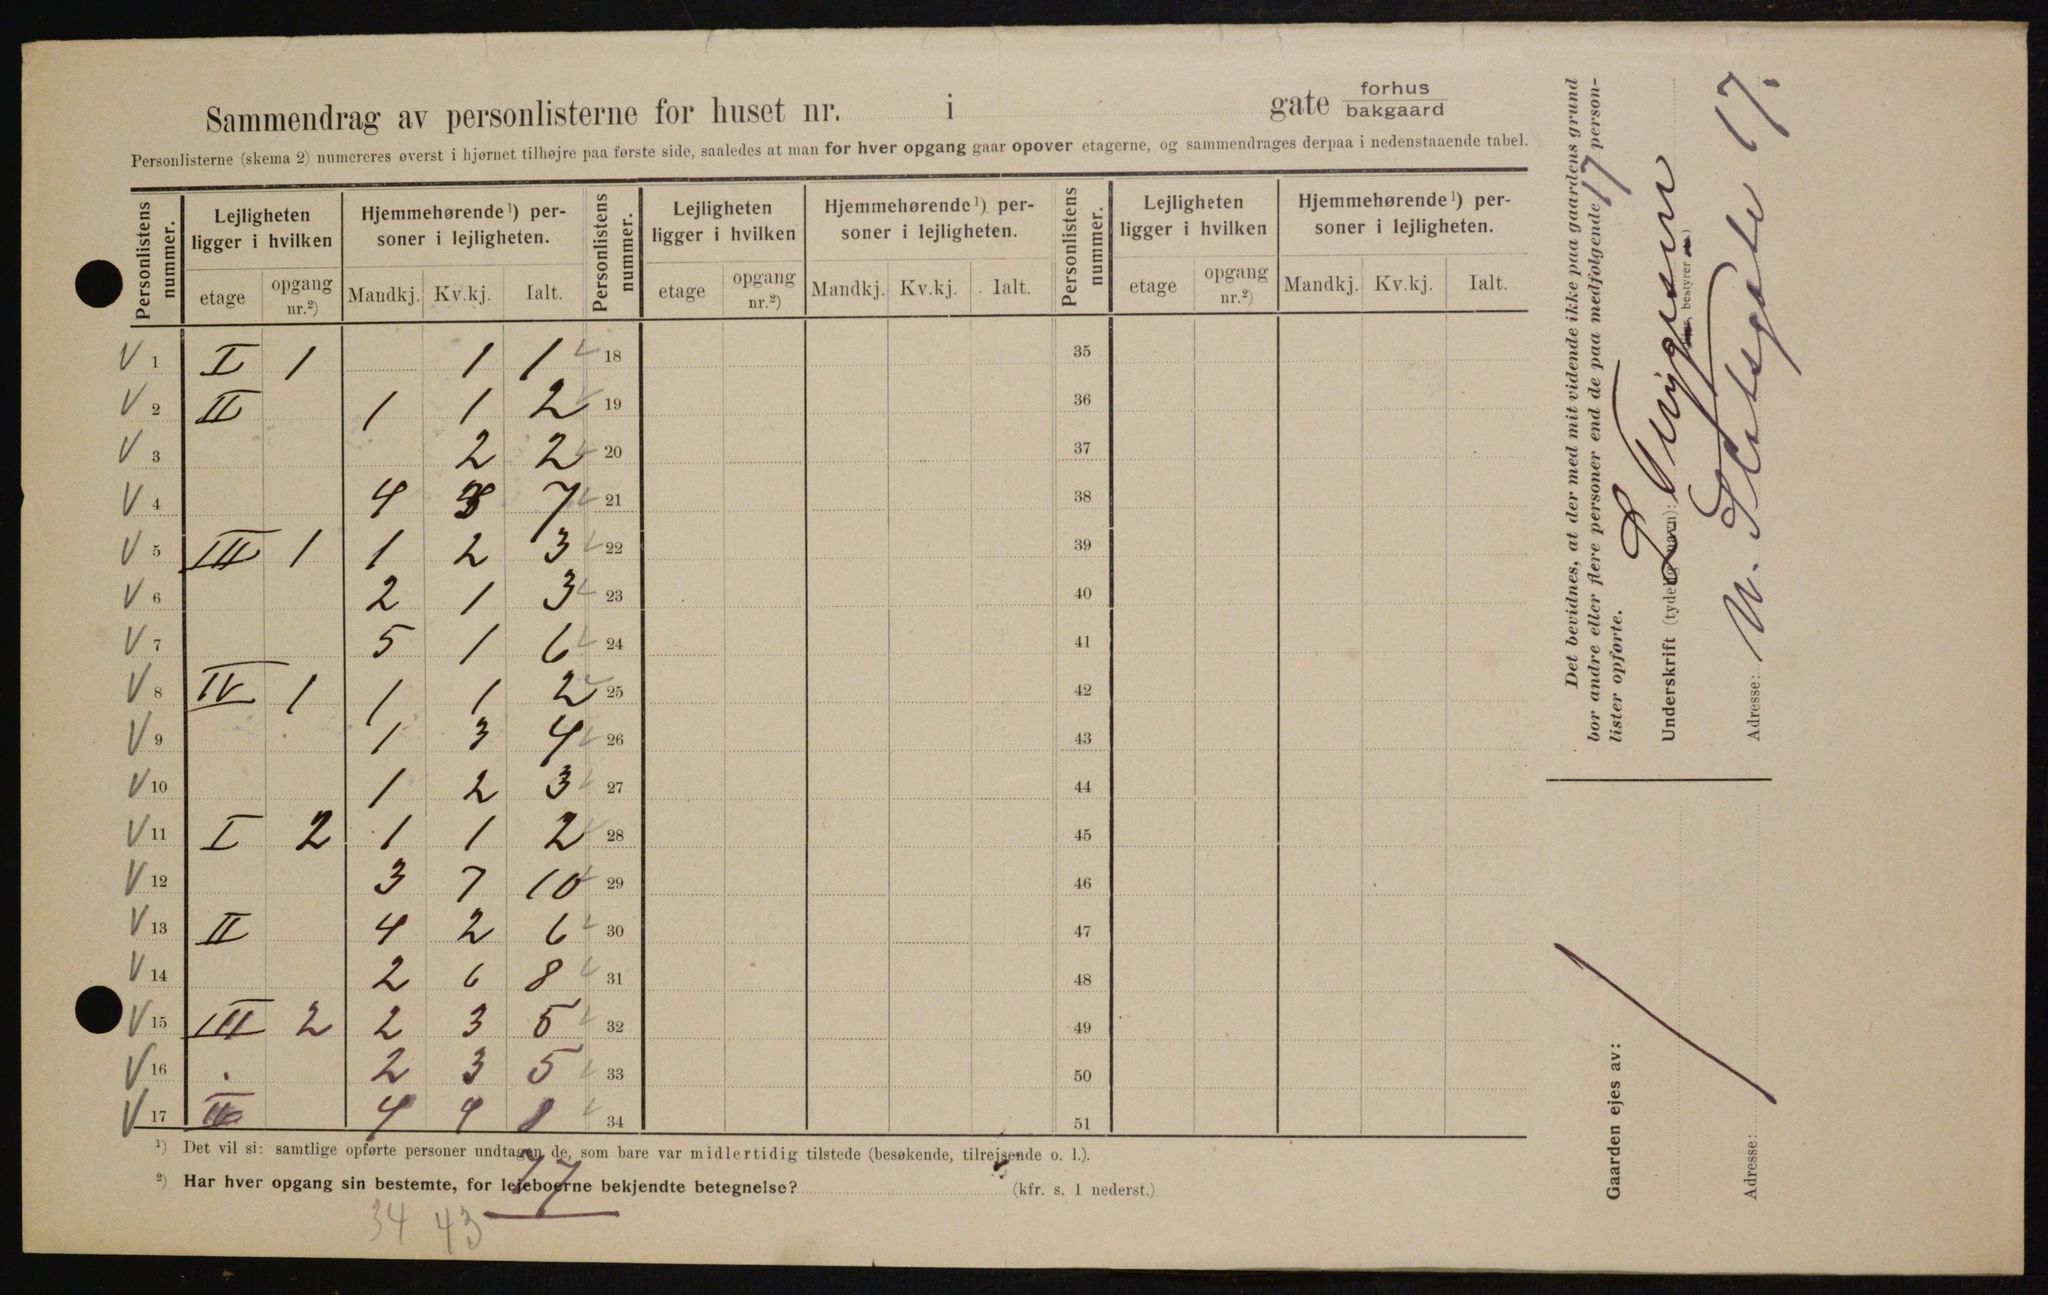 Sammendrag av personlisterne for huset nr. i gate forhus bakgaard
Personlisterne (skema 2) numereres øverst i hjørnet tilhøjre paa første side, saaledes at man for hver opgang gaar opover etagerne, og sammendrages derpaa i nedenstaaende tabel.
Personlistens nummer. Lejligheten ligger i hvilken Hjemmehørende ¹) personer i lejligheten. Personlistens nummer. Lejligheten ligger i hvilken Hjemmehørende ¹) personer i lejligheten. Personlistens nummer. Lejligheten ligger i hvilken Hjemmehørende ¹) personer i lejligheten.
etage opgang nr.²) Mandkj. Kv.kj. Ialt. etage opgang nr.²) Mandkj. Kv.kj. Ialt. etage opgang nr.²) Mandkj. Kv.kj. Ialt.
V 1 I 1 1 1 18 35
V 2 II 1 1 2 19 36
V 3 2 2 20 37
V 4 4 3 7 21 38
V 5 III 1 1 2 3 22 39
V 6 2 1 3 23 40
V 7 5 1 6 24 41
V 8 IV 1 1 1 2 25 42
V 9 1 3 4 26 43
V 10 1 2 3 27 44
V 11 I 2 1 1 2 28 45
V 12 3 7 10 29 46
V 13 II 4 2 6 30 47
V 14 2 6 8 31 48
V 15 III 2 2 3 5 32 49
V 16 2 3 5 33 50
V 17 4 4 8 34 51
¹) Det vil si: samtlige opførte personer undtagen de, som bare var midlertidig tilstede (besøkende, tilrejsende o. l.).
²) Har hver opgang sin bestemte, for lejeboerne bekjendte betegnelse? (kfr. s. 1 nederst.)
77
34 43
Det bevidnes, at der med mit vidende ikke paa gaardens grund
bor andre eller flere personer end de paa medfølgende 17 person-
lister opførte.
Underskrift (tydelig navn):
bestyrer
Adresse: 17.
Gaarden ejes av:
Adresse: